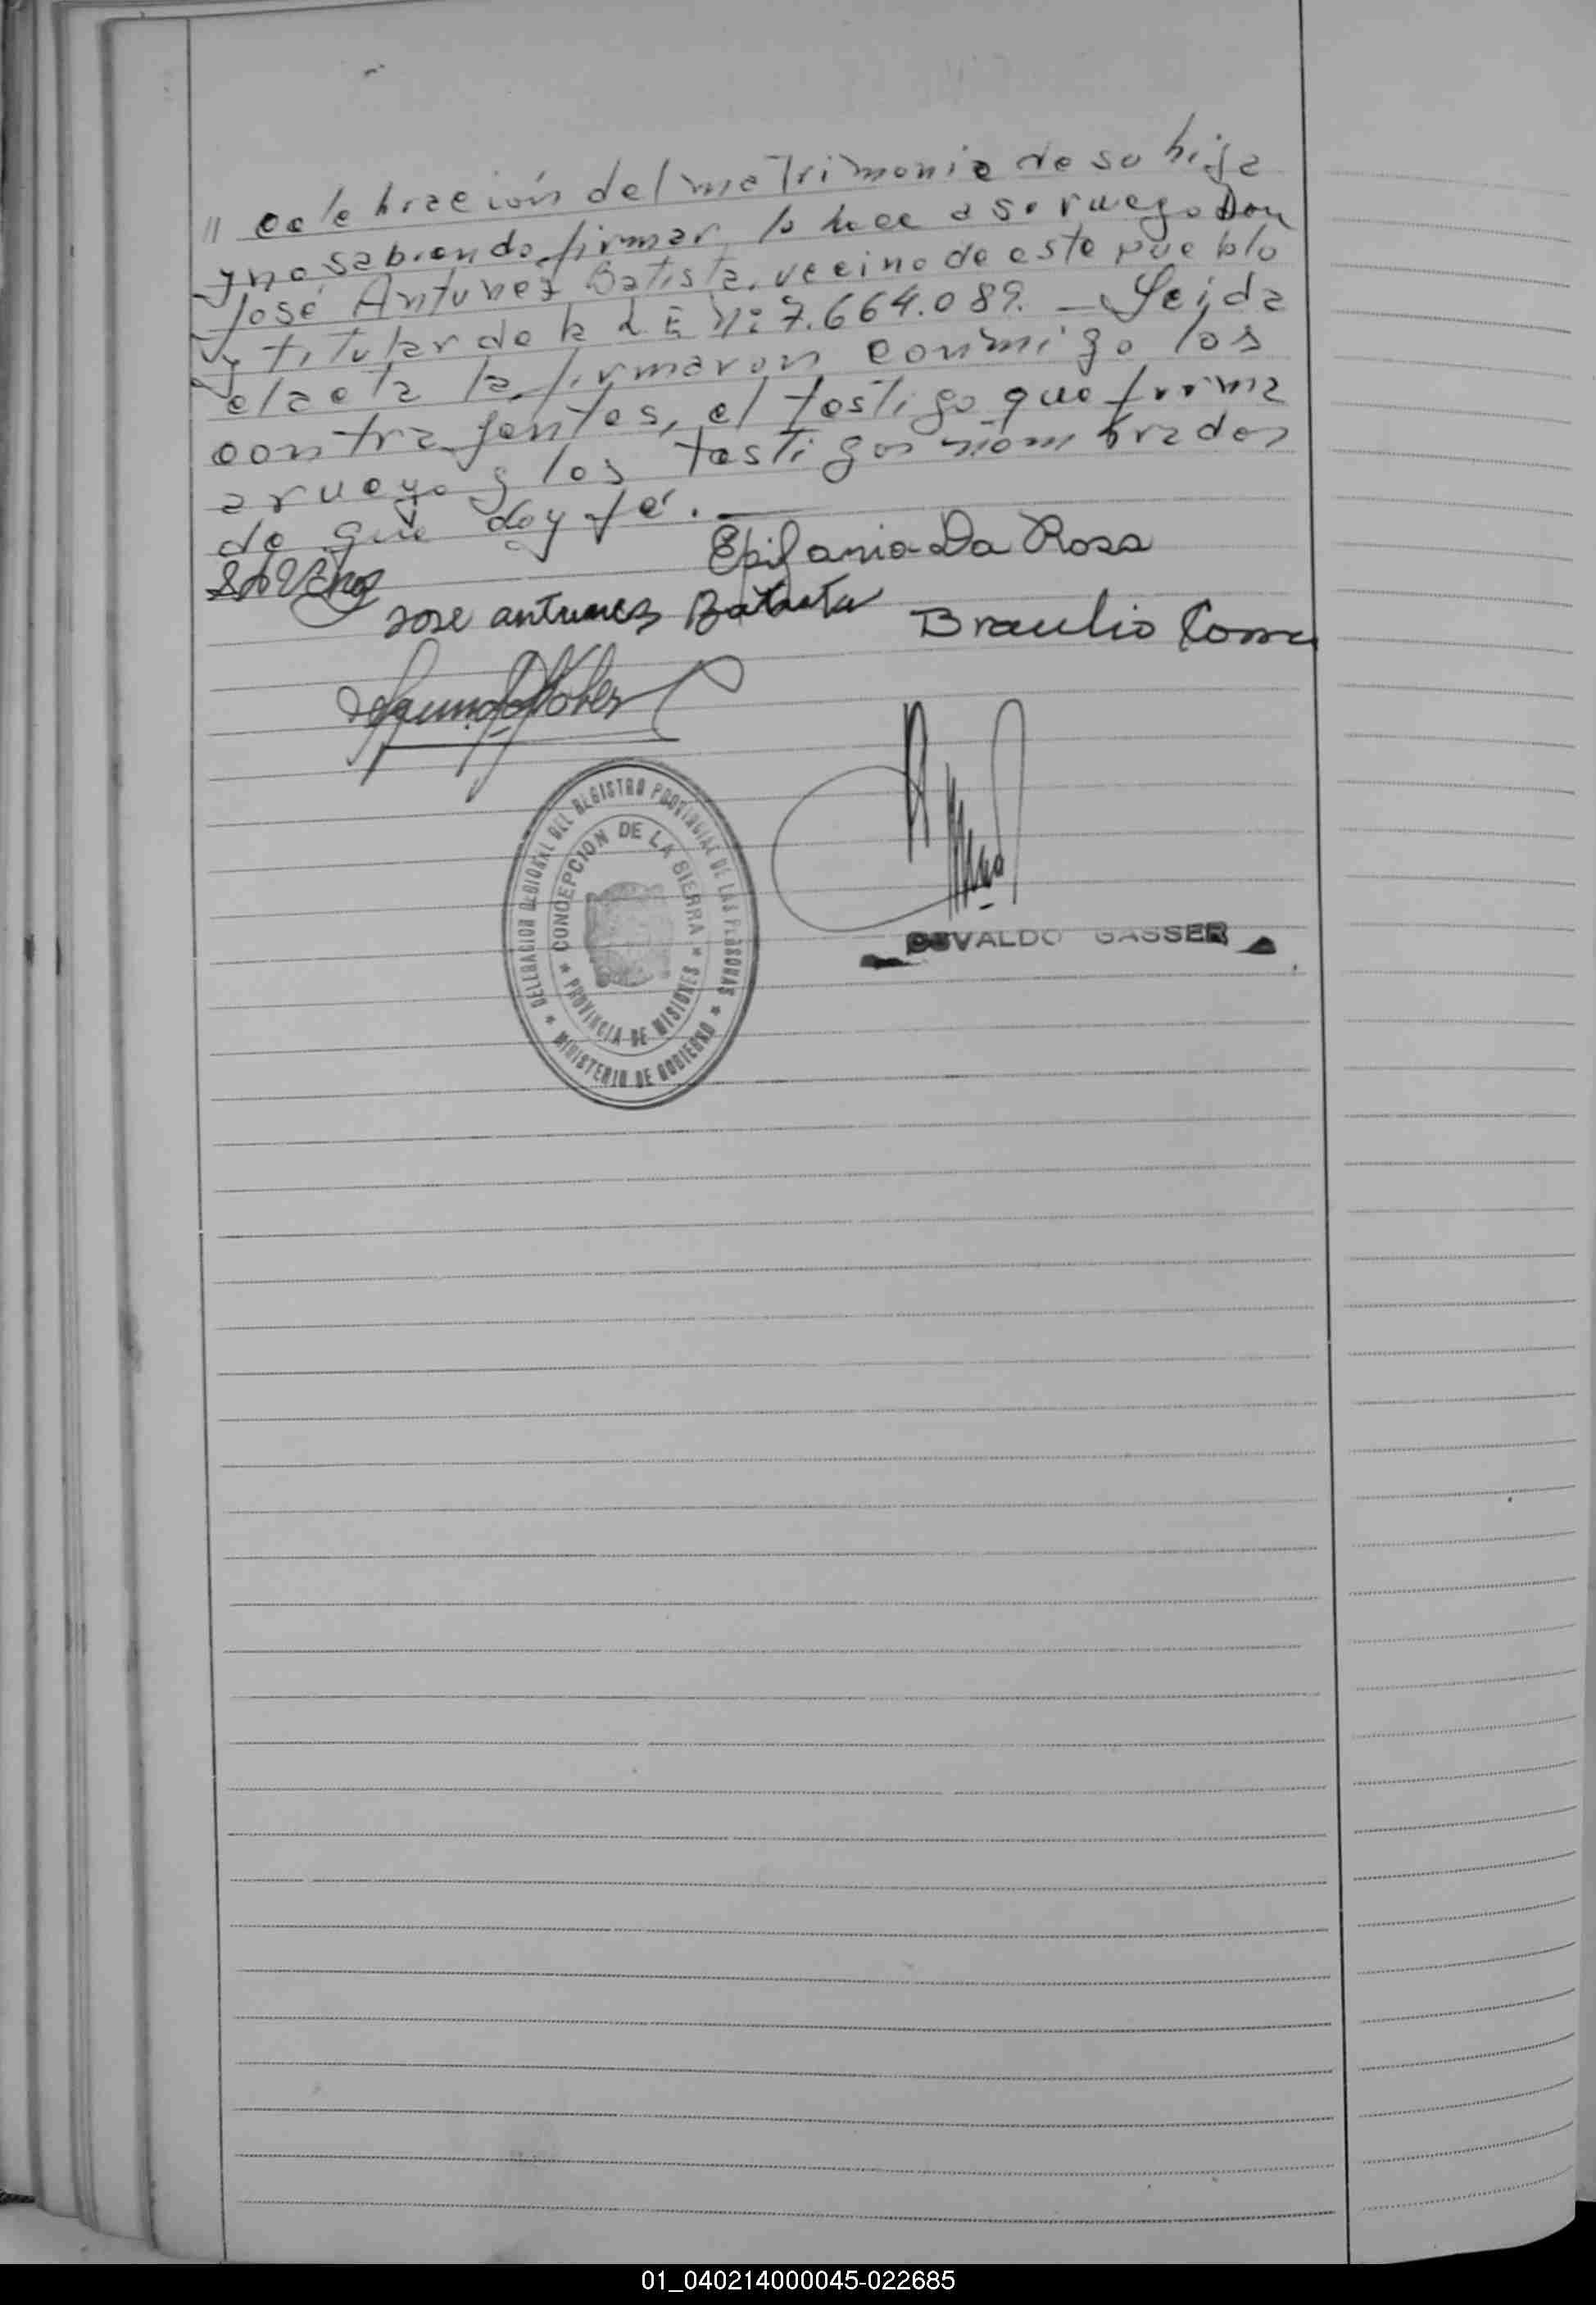 // celebración del matrimonio de su hija
y no sabiendo firmar, lo hace a su ruego Don
José Antunez Batista, vecino de este pueblo
y titular de la L.E. Nº 7.664.089. — Leída
el acta la firmaron conmigo los
contrayentes, el testigo que firma
a ruego y los testigos nombrados
de que doy fé. —
Epifania Da Rosa
Jose antunez Batista
Braulio
Segundo
DELEGACION REGIONAL DEL REGISTRO PROVINCIAL DE LAS PERSONAS
* MINISTERIO DE GOBIERNO *
CONCEPCION DE LA SIERRA
* PROVINCIA DE MISIONES *
OSVALDO GASSER
01_040214000045-022685